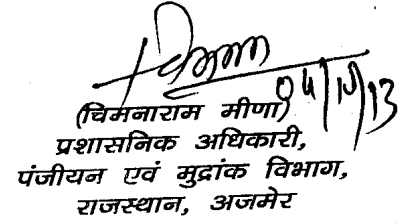 04/10/13
(चिमनाराम मीणा)
प्रशासनिक अधिकारी,
पंजीयन एवं मुद्रांक विभाग,
राजस्थान, अजमेर